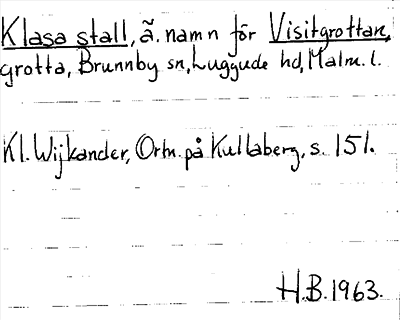 Klasa stall, ã. namn för Visitgrottan,
grotta, Brunnby sn, Luggude hd, Malm. l.
Kl. Wijkander, Ortn. på Kullaberg, s. 151.
H.B. 1963.